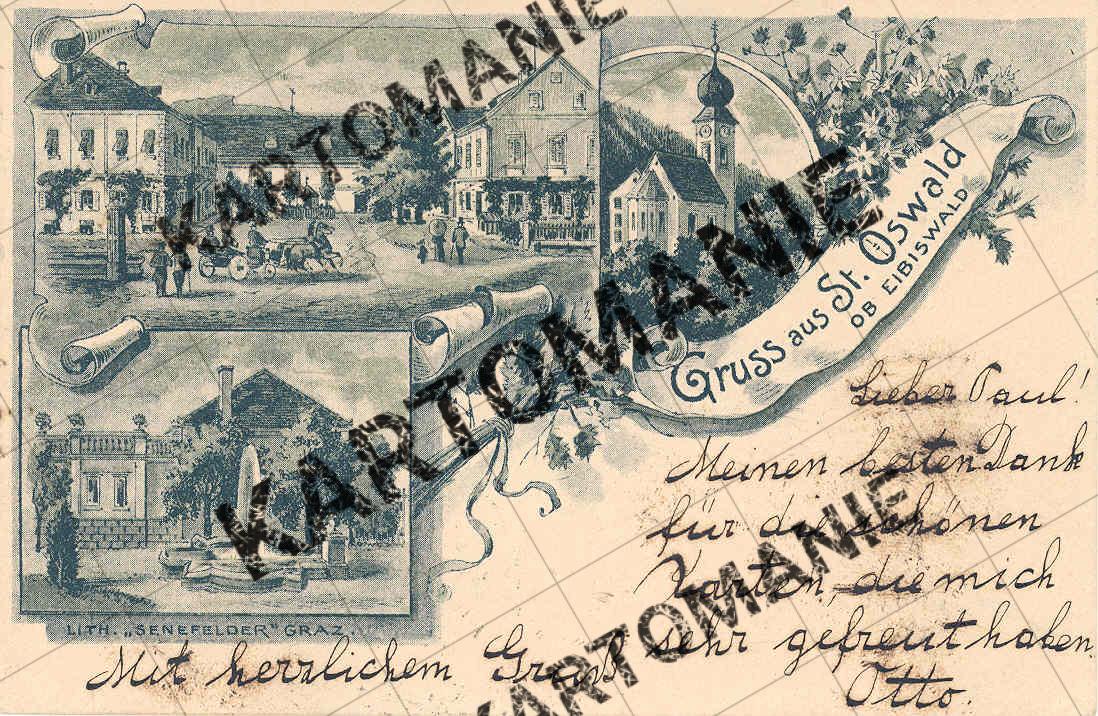 Gruss aus St. Oswald
OB EIBISWALD
Lieber Paul!
Meinen besten Dank
für die schönen
Karten, die mich
sehr gefreut haben.
Mit herzlichem Gruß
Otto.
LITH. „SENEFELDER" GRAZ.
KARTOMANIE
KARTOMANIE
KARTOMANIE